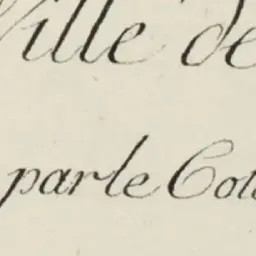 Ville de
par le Cot